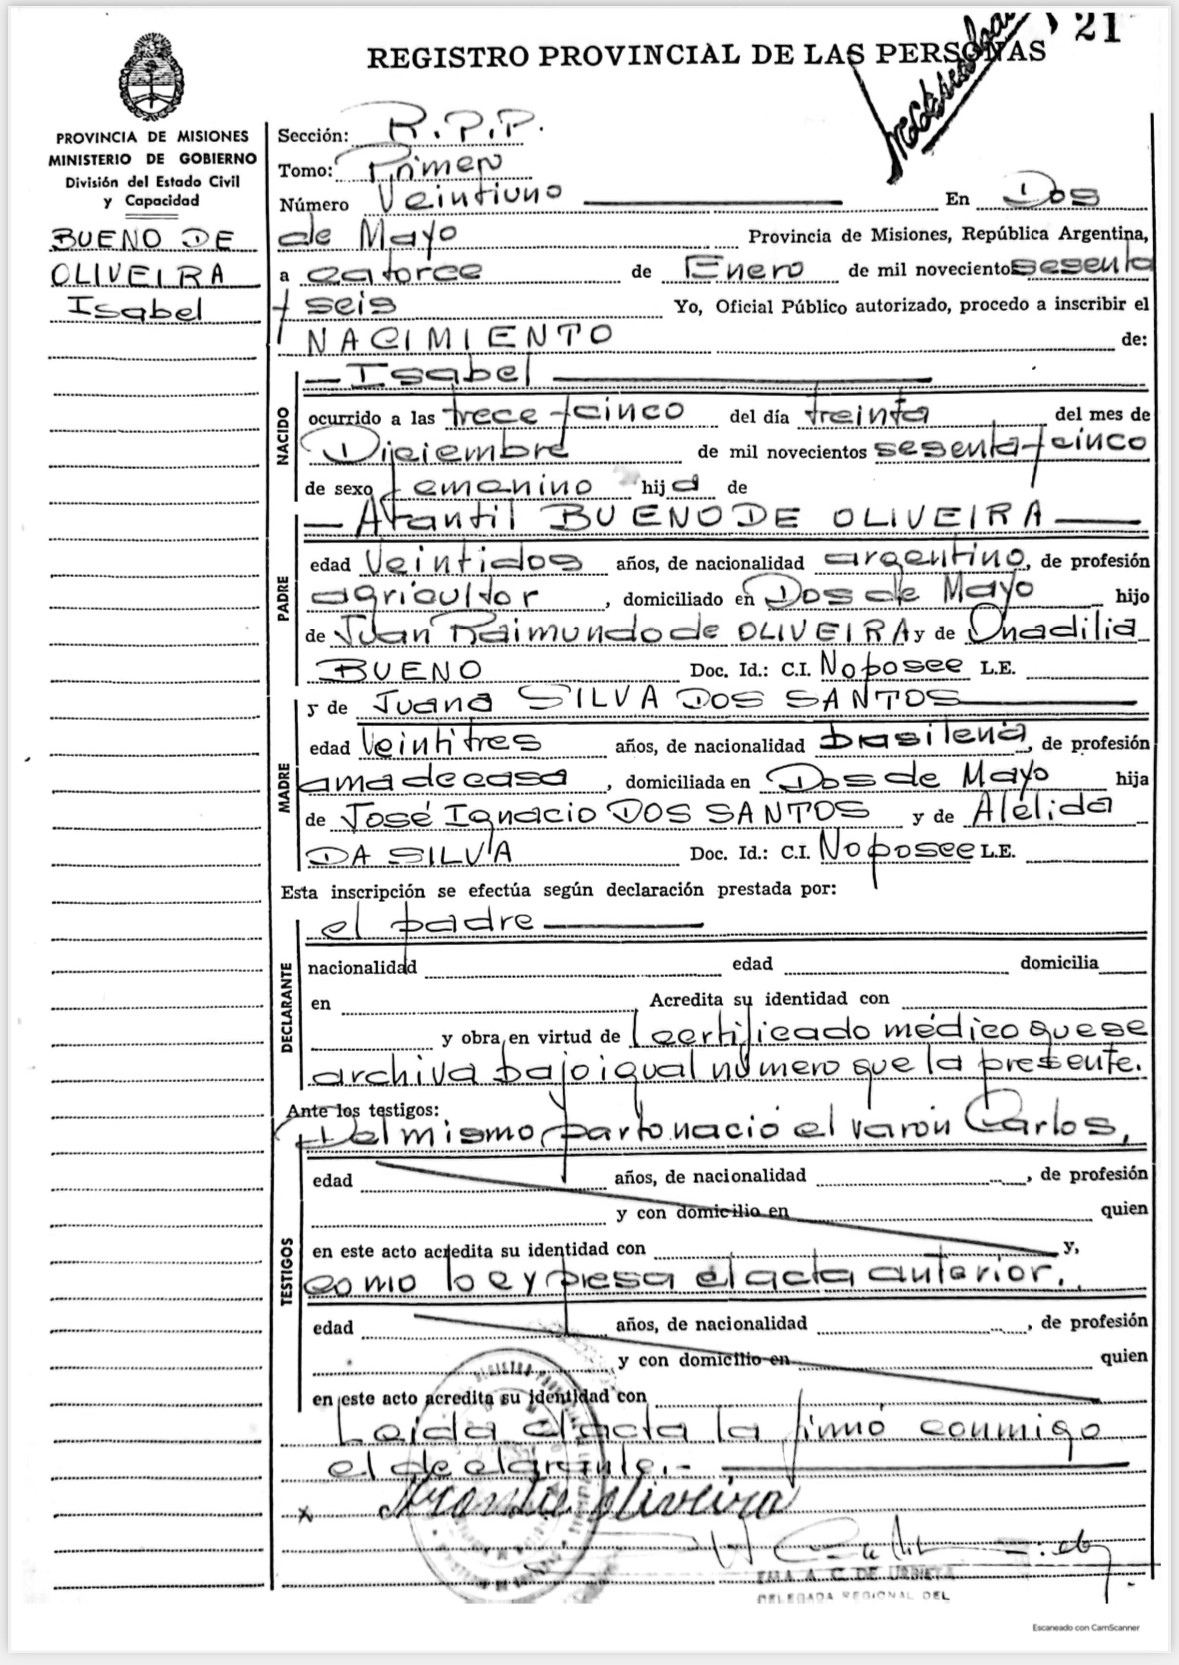 21
REGISTRO PROVINCIAL DE LAS PERSONAS
PROVINCIA DE MISIONES
MINISTERIO DE GOBIERNO
División del Estado Civil
y Capacidad
BUENO DE
OLIVEIRA
Isabel
Sección: R.P.P.
Tomo: Primero
Número Veintiuno En Dos
de Mayo Provincia de Misiones, República Argentina,
a catorce de Enero de mil novecientos sesenta
y seis Yo, Oficial Público autorizado, procedo a inscribir el
NACIMIENTO de:
NACIDO
Isabel
ocurrido a las trece y cinco del día treinta del mes de
Diciembre de mil novecientos sesenta y cinco
de sexo femenino hija de
PADRE
Arantil BUENO DE OLIVEIRA
edad Veintidos años, de nacionalidad argentino, de profesión
agricultor, domiciliado en Dos de Mayo hijo
de Juan Raimundo de OLIVEIRA y de Onadilia
BUENO Doc. Id.: C.I. No posee L.E.
y de Juana SILVA DOS SANTOS
MADRE
edad Veintitres años, de nacionalidad brasilena, de profesión
ama de casa, domiciliada en Dos de Mayo hija
de José Ignacio DOS SANTOS y de Alélida
DA SILVA Doc. Id.: C.I. No posee L.E.
Esta inscripción se efectúa según declaración prestada por:
DECLARANTE
el padre
nacionalidad edad domicilia
en Acredita su identidad con
y obra en virtud de certificado médico que se
archiva bajo igual número que la presente.
Ante los testigos:
Del mismo parto nació el varón Carlos,
TESTIGOS
edad años, de nacionalidad , de profesión
y con domicilio en quien
en este acto acredita su identidad con y,
como lo expresa el acta anterior.
edad años, de nacionalidad , de profesión
y con domicilio en quien
en este acto acredita su identidad con
Leida el acta la firmó conmigo
el declarante.-
x Arantil Oliveira
EMA. A. C. DE URBIETA
DELEGADA REGIONAL DEL
Escaneado con CamScanner